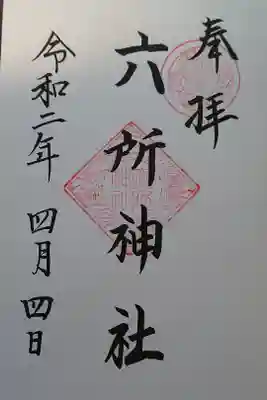 奉拝
六所神社
令和二年 四月 四日